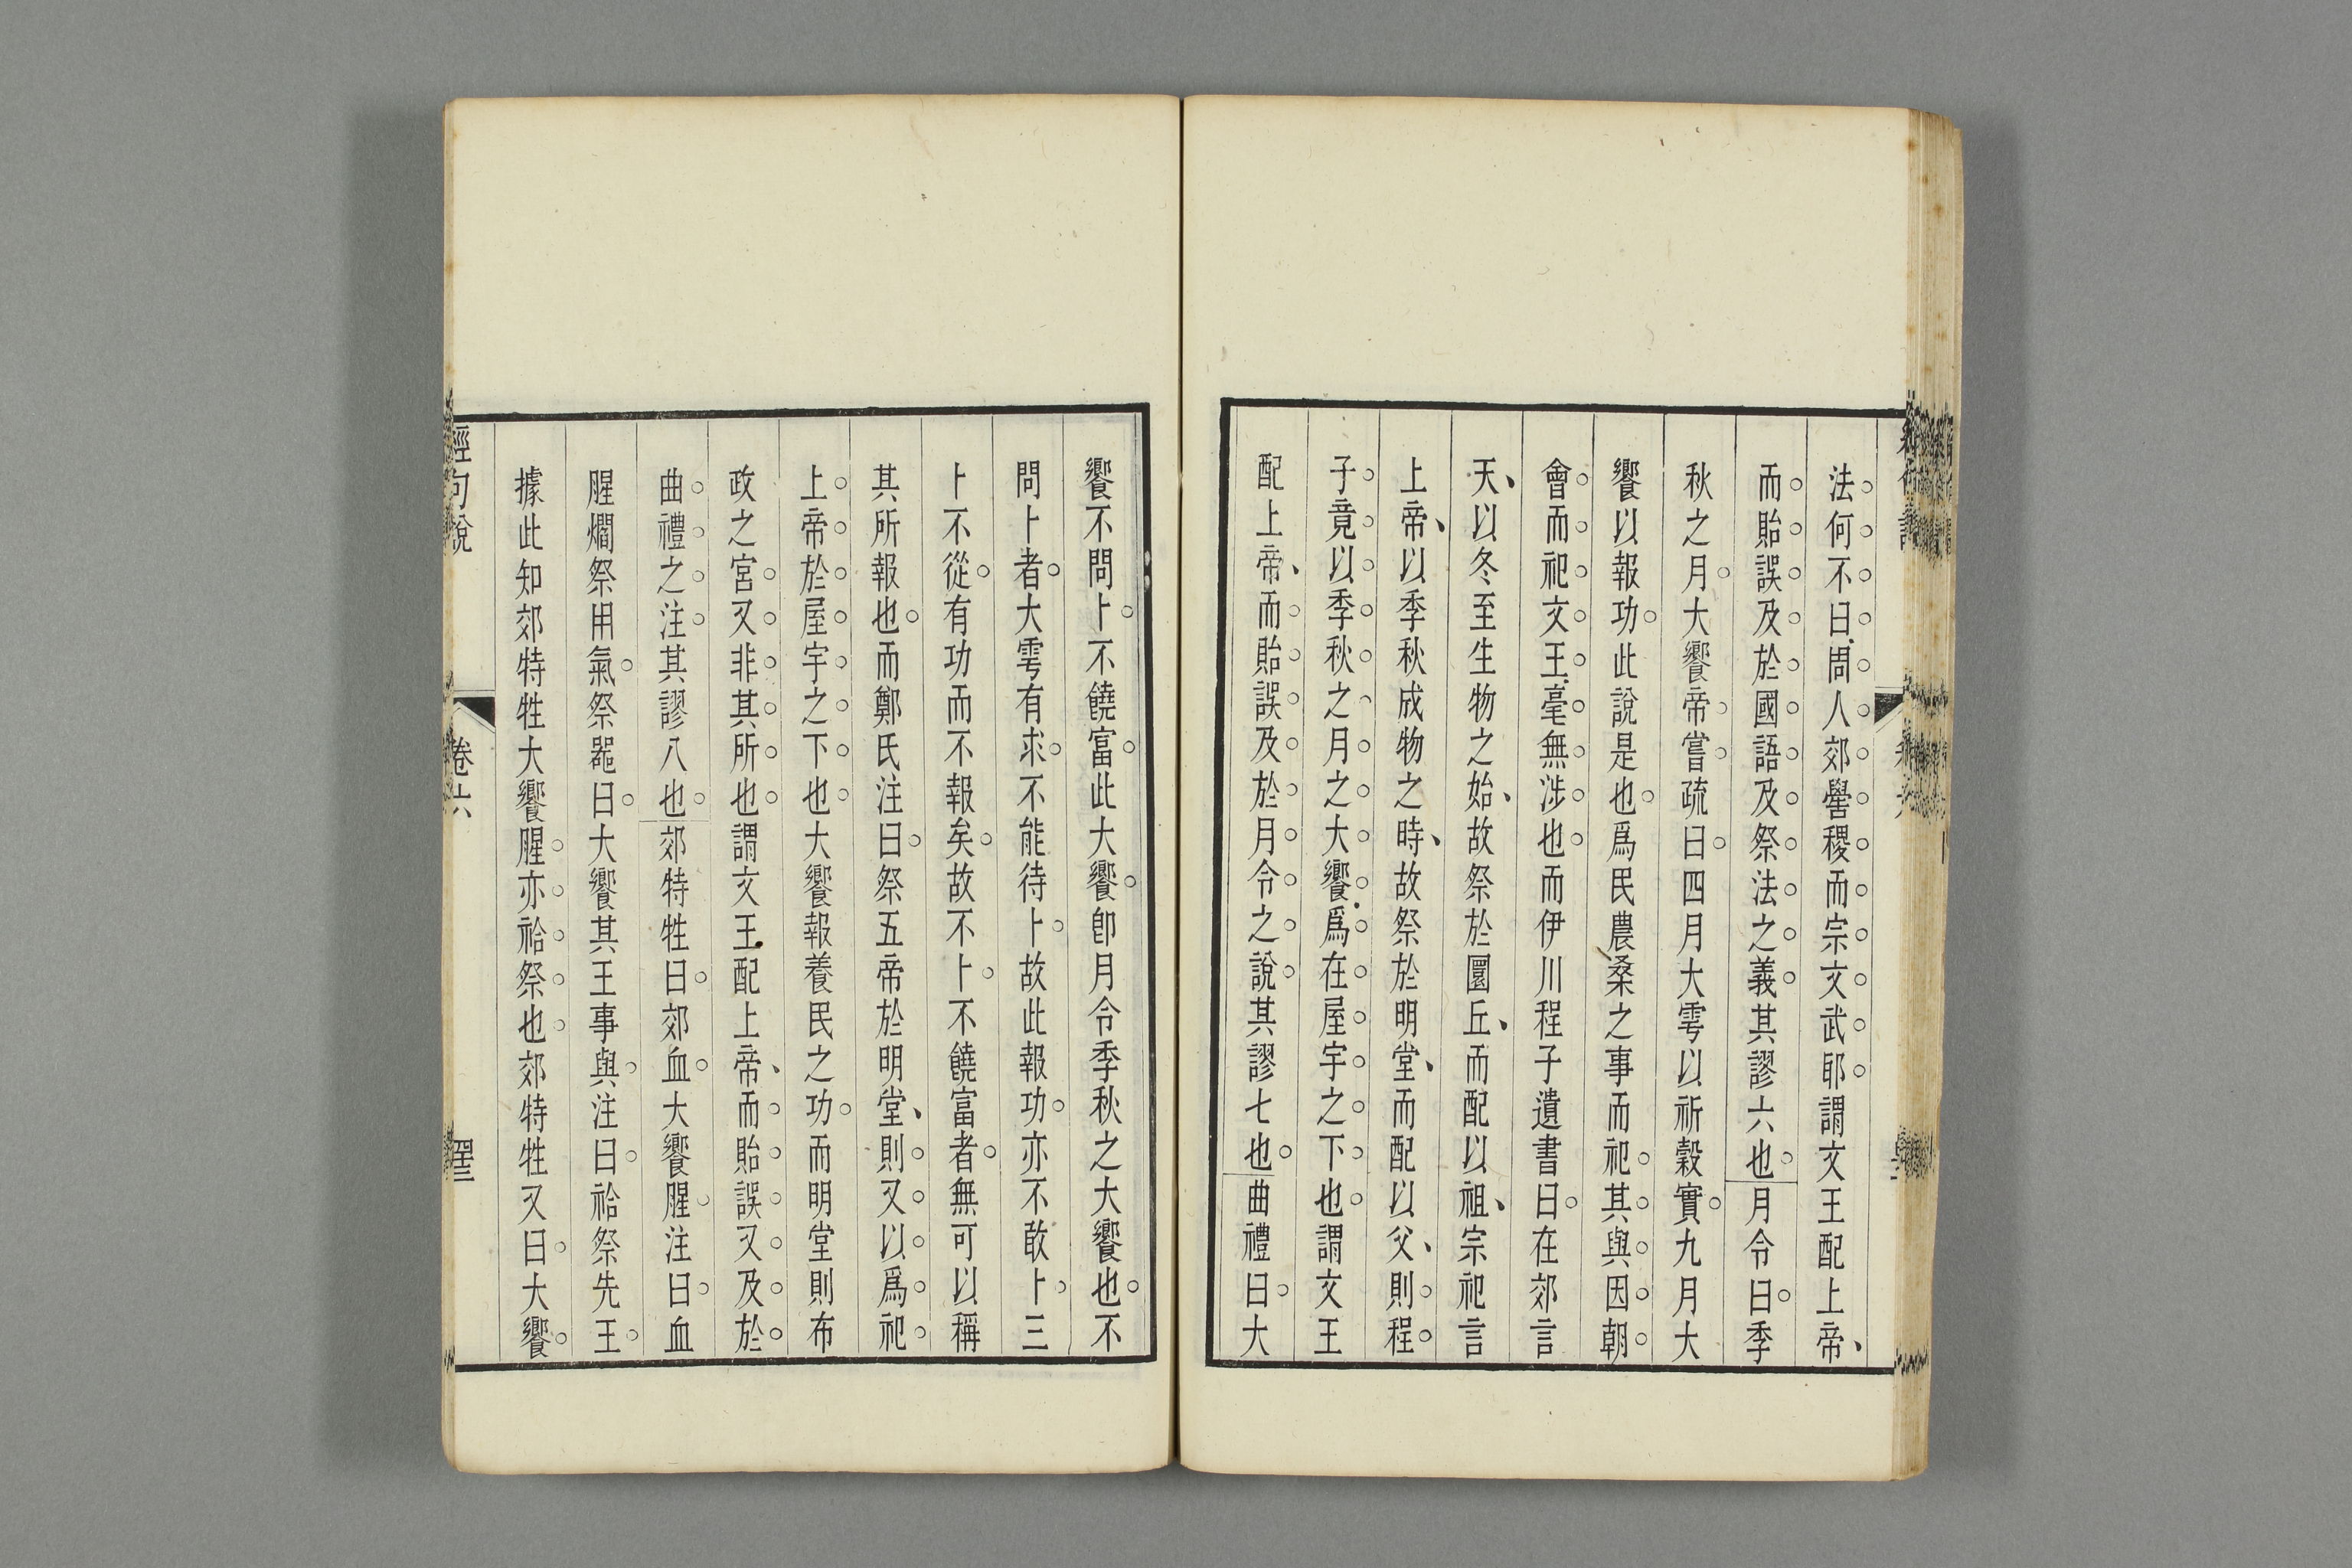 法何不曰周人郊嚳稷而宗文武耶謂文王配上帝
而貽誤及於國語及祭法之義其謬六也月令曰季
秋之月大饗帝嘗疏曰四月大雩以祈穀實九月大
饗以報功此說是也爲民農桑之事而祀其與因朝
會而祀文王毫無涉也而伊川程子遺書曰在郊言
天以冬至生物之始故祭於圜丘而配以祖宗祀言
上帝以季秋成物之時故祭於明堂而配以父則程
子竟以季秋之月之大饗爲在屋宇之下也謂文王
配上帝而貽誤及於月令之說其謬七也曲禮曰大
饗不問卜不饒富此大饗卽月令季秋之大饗也不
問卜者大雩有求不能待卜故此報功亦不敢卜三
卜不從有功而不報矣故不卜不饒富者無可以稱
其所報也而鄭氏注曰祭五帝於明堂則又以爲祀
上帝於屋宇之下也大饗報養民之功而明堂則布
政之宮又非其所也謂文王配上帝而貽誤又及於
曲禮之注其謬八也郊特牲曰郊血大饗腥注曰血
腥爓祭用氣祭器曰大饗其王事與注曰祫祭先王
據此知郊特牲大饗腥亦祫祭也郊特牲又曰大饗
經句說
卷六